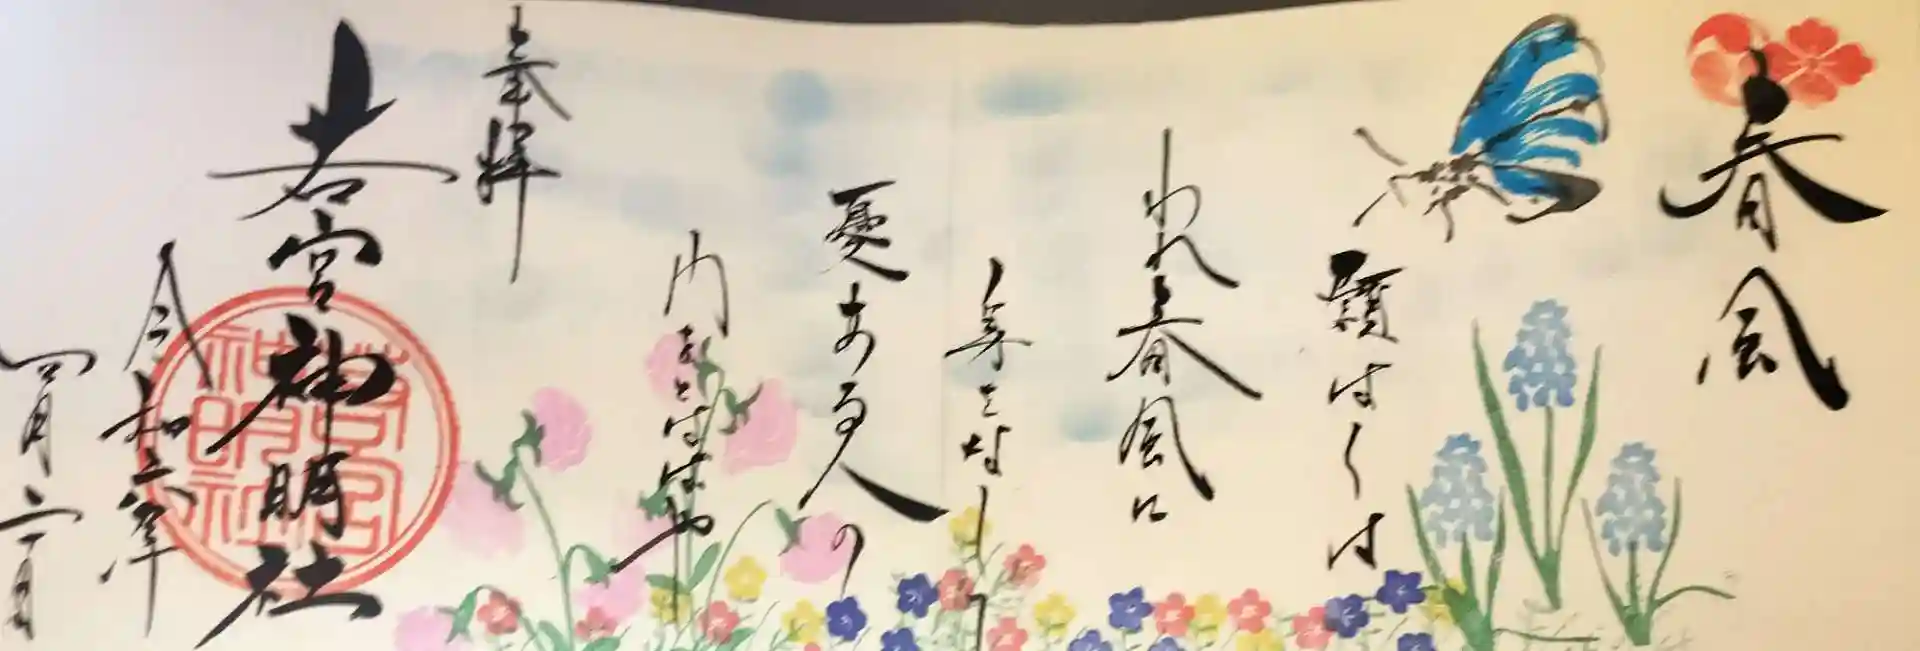 春風
願はくは
われ春風に
身をなして
憂ある人の
門をとはばや
奉拝
若宮神明社
令和六年
四月
若宮
神明社